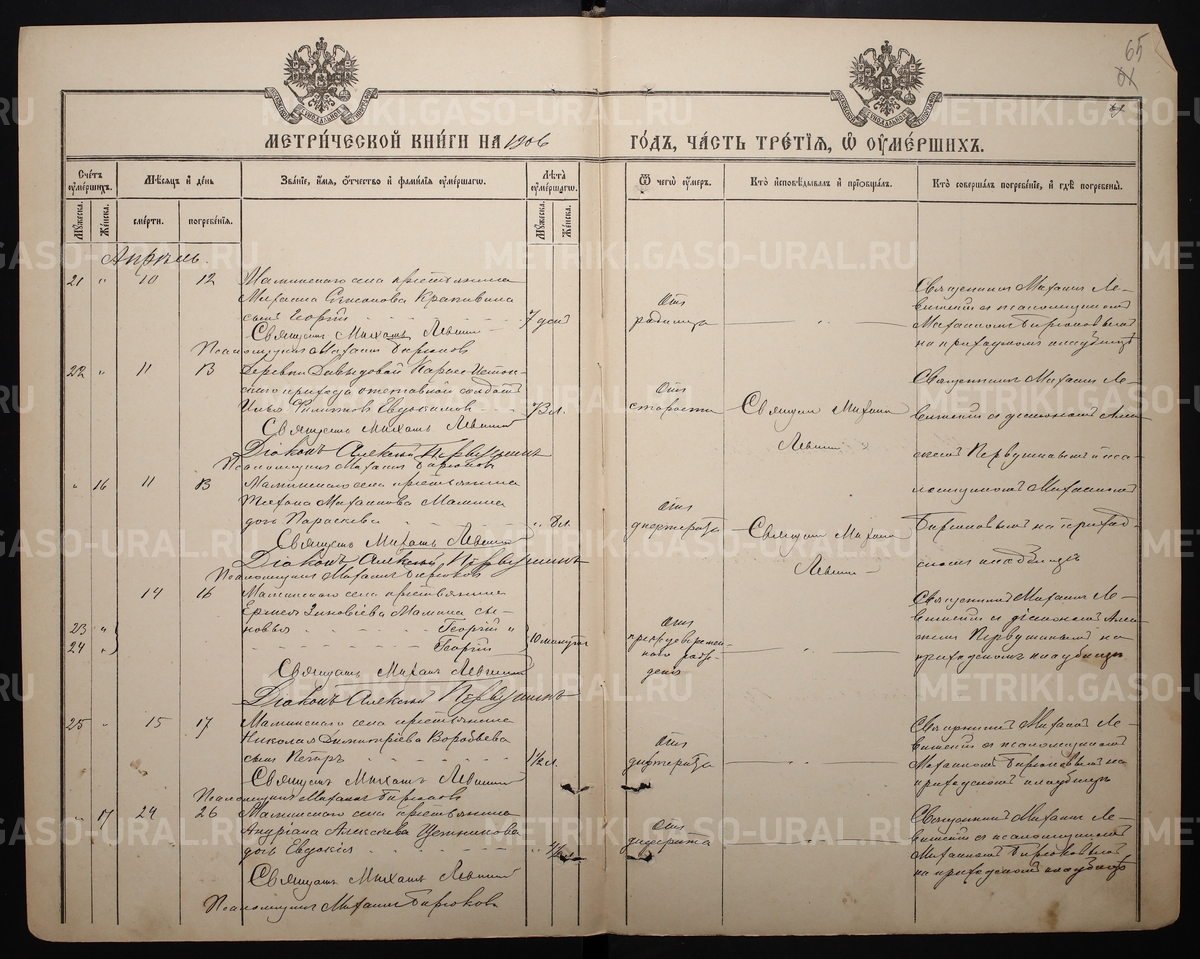 65
МЕТРИ́ЧЕСКОЙ КНИ́ГИ НА 1906 ГО́ДЪ, ЧА́СТЬ ТРЕ́ТІѦ, Ѿ ОУМЕ́РШИХЪ.
Сче́тъ оуме́ршихъ.
Мѣ́сѧцъ и҆ де́нь
Зва́нїе, и҆́мѧ, ѻ҆́тчество и҆ фами́лїѧ оуме́ршагѡ.
Лѣ́та оуме́ршагѡ.
Ѿ чегѡ̀ оу́меръ.
Кто̀ и҆сповѣ́дывалъ и҆ прїѡбща́лъ.
Кто̀ соверша́лъ погребе́нїе, и҆ гдѣ̀ погребены̀.
Мꙋ́жеска.
Же́нска.
сме́рти.
погребе́нїѧ.
Мꙋ́жеска.
Же́нска.
Апрѣль.
21 " 10 12 Маминскаго села крестьянина
Михаила Крапивина
сынъ Георгій 7 дней
Священникъ Михаилъ Левицкій
Псаломщикъ Михаилъ Бирюковъ
Отъ
Священникъ Михаилъ Ле-
вицкій съ псаломщикомъ
Михаиломъ Бирюковымъ
на приходскомъ кладбищѣ
22 " 11 13 Деревни Давыдовой
прихода отставной солдатъ
Илья Филиповъ Евдокимовъ 73 л.
Священникъ Михаилъ Левицкій
Діаконъ Алексій Первушинъ
Псаломщикъ Михаилъ Бирюковъ
Отъ
старости
Священ. Михаилъ
Левицкій
Священникъ Михаилъ Ле-
вицкій съ діакономъ Але-
ксіемъ Первушинымъ и пса-
ломщикомъ Михаиломъ
Бирюковымъ на приход-
скомъ кладбищѣ
" 16 11 13 Маминскаго села крестьянина
Мамина
дочь Параскева " 8 л.
Священникъ Михаилъ Левицкій
Діаконъ Алексій Первушинъ
Псаломщикъ Михаилъ Бирюковъ
Отъ
дифтерита
Священ. Михаилъ
Левицкій
14 16 Маминскаго села крестьянина
Зиновіева Мамина сы-
новья Георгій
23 "
24 " Георгій 10 минутъ
Священникъ Михаилъ Левицкій
Діаконъ Алексій Первушинъ
Отъ
преждевремен-
наго рож-
денія
Священникъ Михаилъ Ле-
вицкій съ діакономъ Але-
ксіемъ Первушинымъ на
приходскомъ кладбищѣ
25 " 15 17 Маминскаго села крестьянина
Николая Димитріева Воробьева
сынъ Петръ 1½ л.
Священникъ Михаилъ Левицкій
Псаломщикъ Михаилъ Бирюковъ
Отъ
дифтерита
Священникъ Михаилъ Ле-
вицкій съ псаломщикомъ
Михаиломъ Бирюковымъ на
приходскомъ кладбищѣ
" 17 24 26 Маминскаго села крестьянина
Андріана Алексѣева
дочь Евдокія
Священникъ Михаилъ Левицкій
Псаломщикъ Михаилъ Бирюковъ
Отъ
дифтерита
Священникъ Михаилъ Ле-
вицкій съ псаломщикомъ
Михаиломъ Бирюковымъ
на приходскомъ кладбищѣ
METRIKI.GASO-URAL.RU